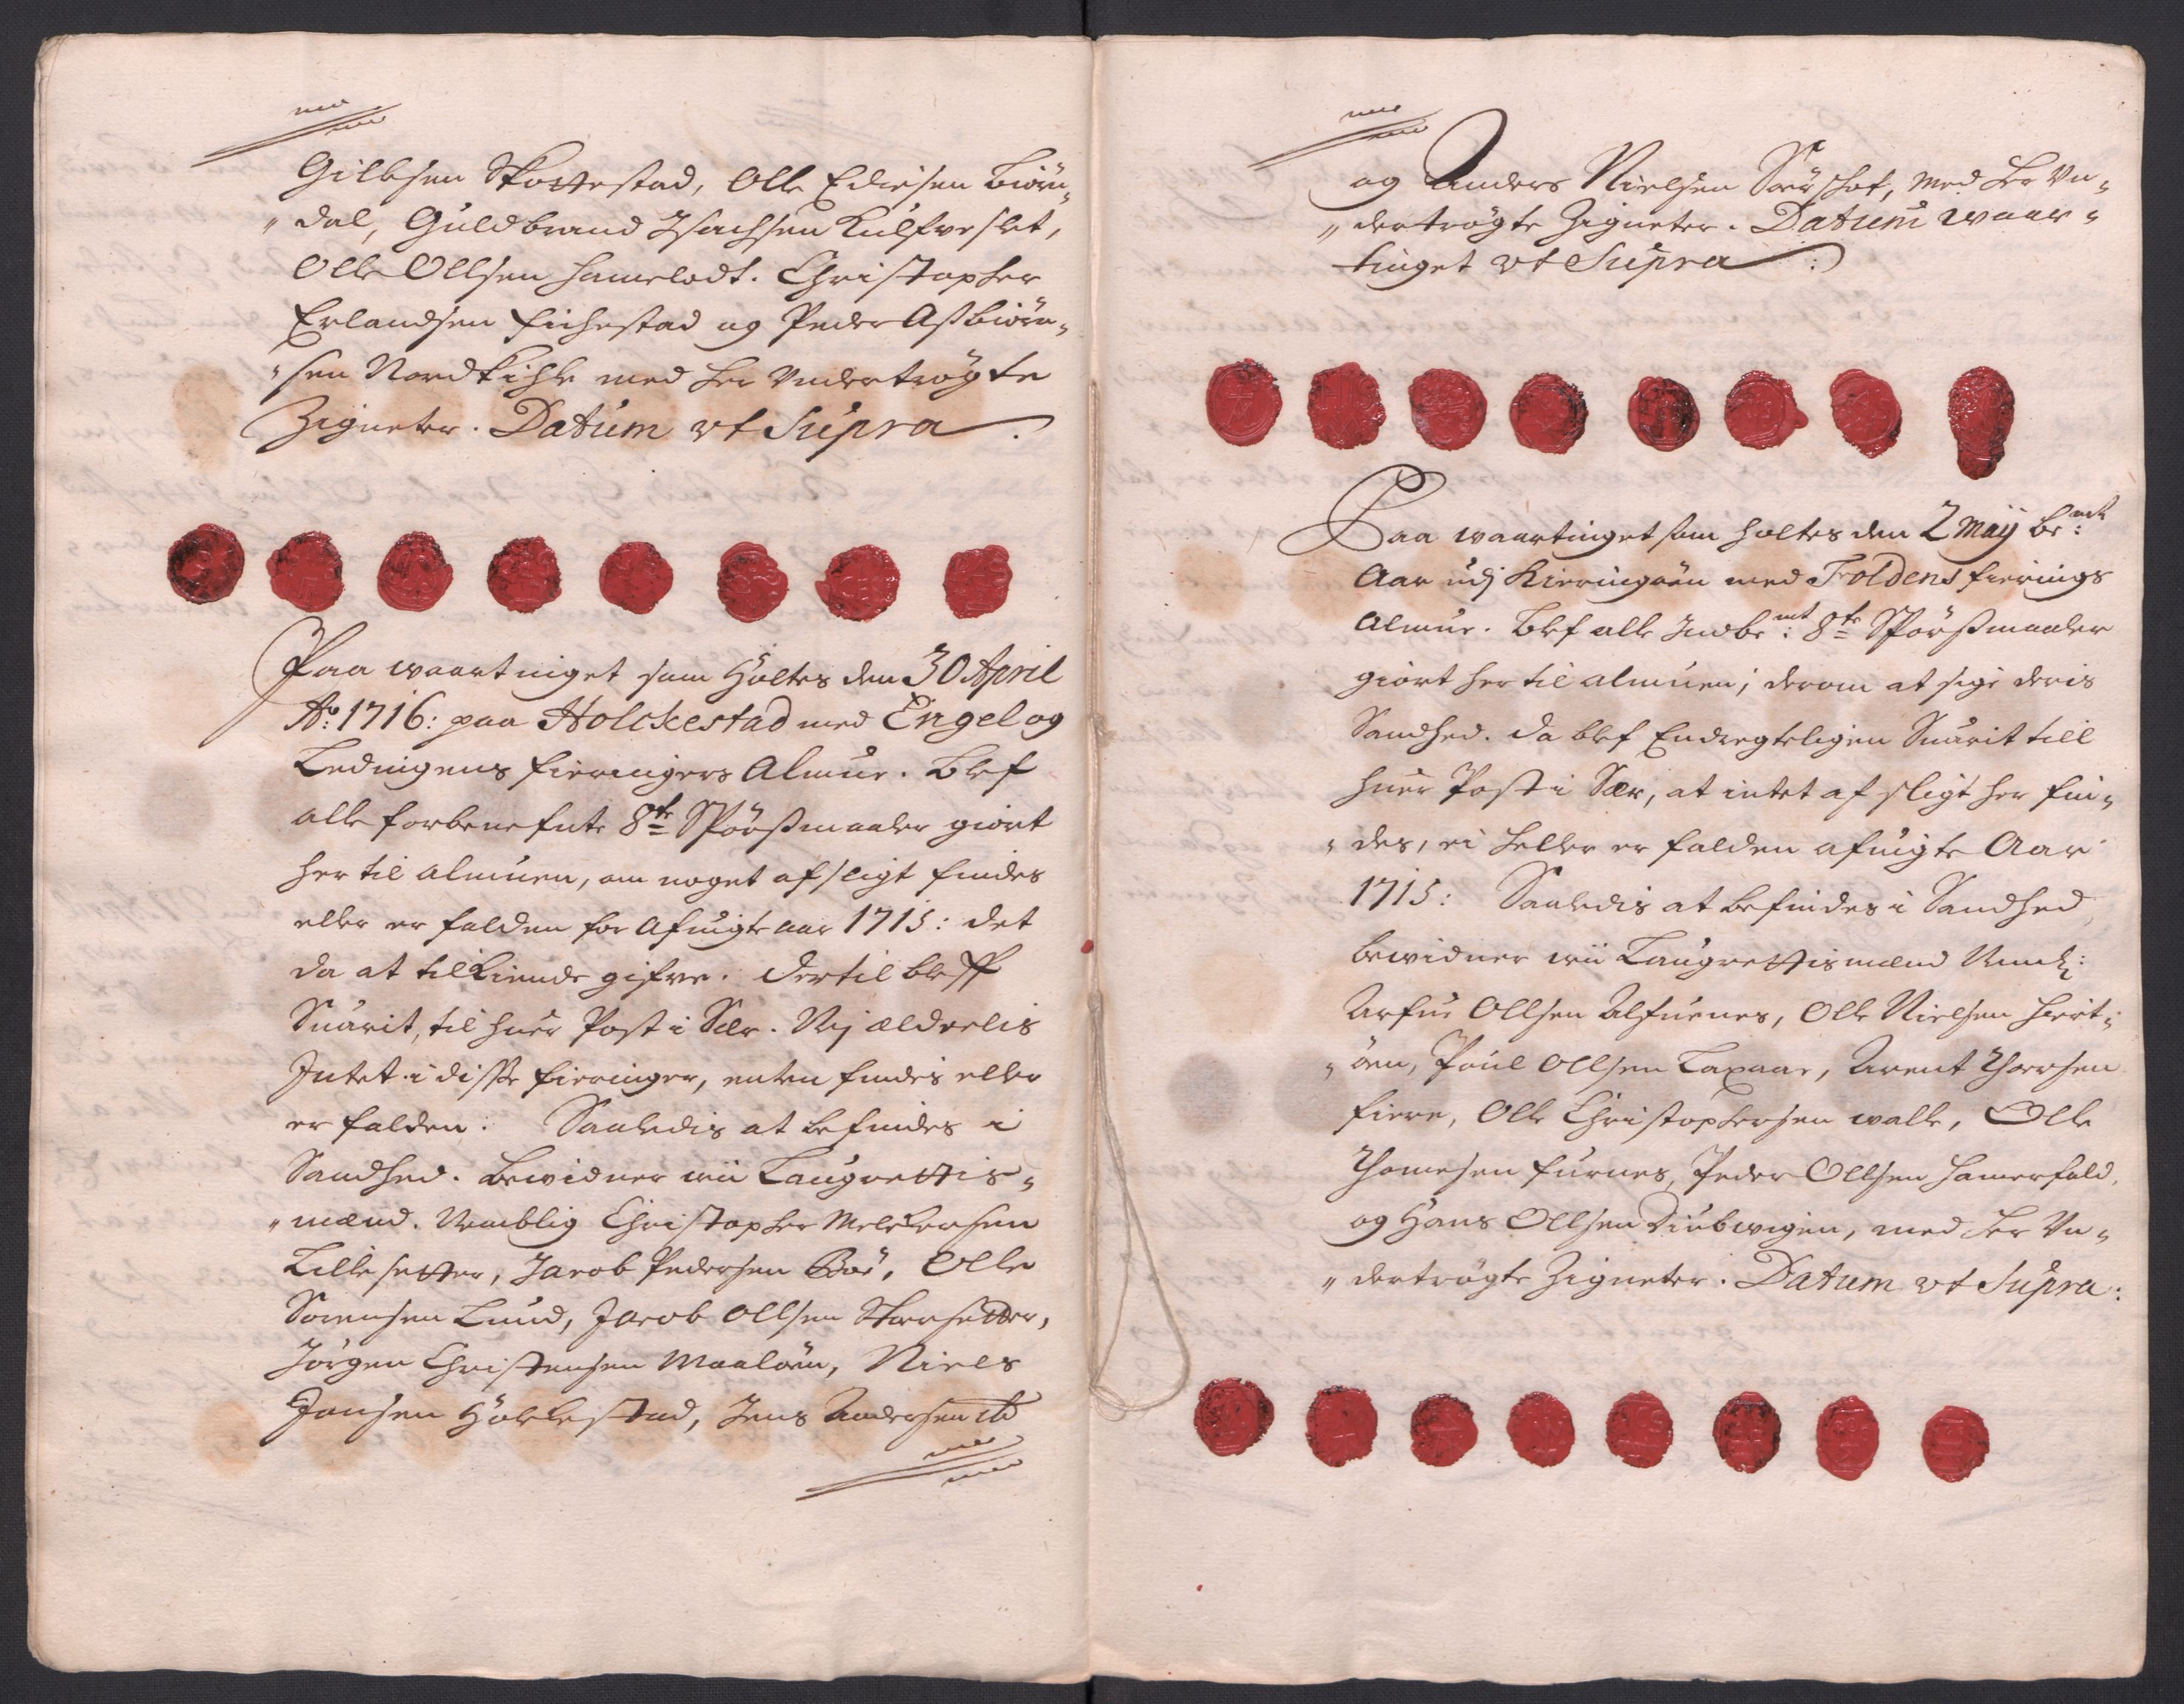 Gillesen Skottestad, Olle Ediesen Biörn-
"dal, Guldbrand Isachsen Kulfveslet,
Olle Ollsen hamelodt. Christopher
Erlandsen fichestad og Peder Asbiörn-
"sen Nordkihle med her Undertrögte
Zigneter. Datum vt Supra.
Paa waartinget som Holtes den 30 April
Ao: 1716: paa Holckestad med Engel og
Ledingens fieringers Almue. Blef
alle forbenefnte 8te Spörßmaaler giort
her til almuen, om noget af sligt findes
eller er falden for Afuigte aar 1715: det
da at tilkiende gifve. dertil bleff
Suarit, til huer Post i Sær. Nej aldeelis
Intet i disse fieringer, enten findes eller
er falden: Saaledis at befindes i
Sandhed. bewidner wii Laugrettis-
"mænd. Nemblig Christopher Melchersen
Lillesetter, Jacob Pedersen Böe, Olle
Sörensen Lund, Jacob Ollsen Storsetter,
Jörgen Christensen Maalöen, Niels
Jonsen Holkestad, Jens Andersen ibd
og Anders Nielsen Sørschot, med her Un-
"dertrögte Zigneter. Datum waar-
tinget vt Supra:
Paa waartinget som holtes den 2 Maij be:mte
Aar udj Kieringöen med Foldens fierings
Almue. blef alle Indbe:mt 8te Spörßmaaler
giort her til almuen; derom at sige deris
Sandhed. da blef Endregteligen Suarit till
huer Post i Sær, at intet af sligt her fin-
"des, ei heller er falden afuigte Aar
1715: Saaledis at befindes i Sandhed
bewidner wii Laugrettismænd Neml:
Arfue Ollsen Alfuenes, Olle Nielsen hiert-
"öen, Poul Ollsen Laxaae, Arent Thorsen
fiere, Olle Christophersen walle, Olle
Thomesen furnes, Peder Ollsen hamerfald,
og Hans Ollsen Diubwigen, med her Un-
"dertrögte Zigneter. Datum vt Supra: